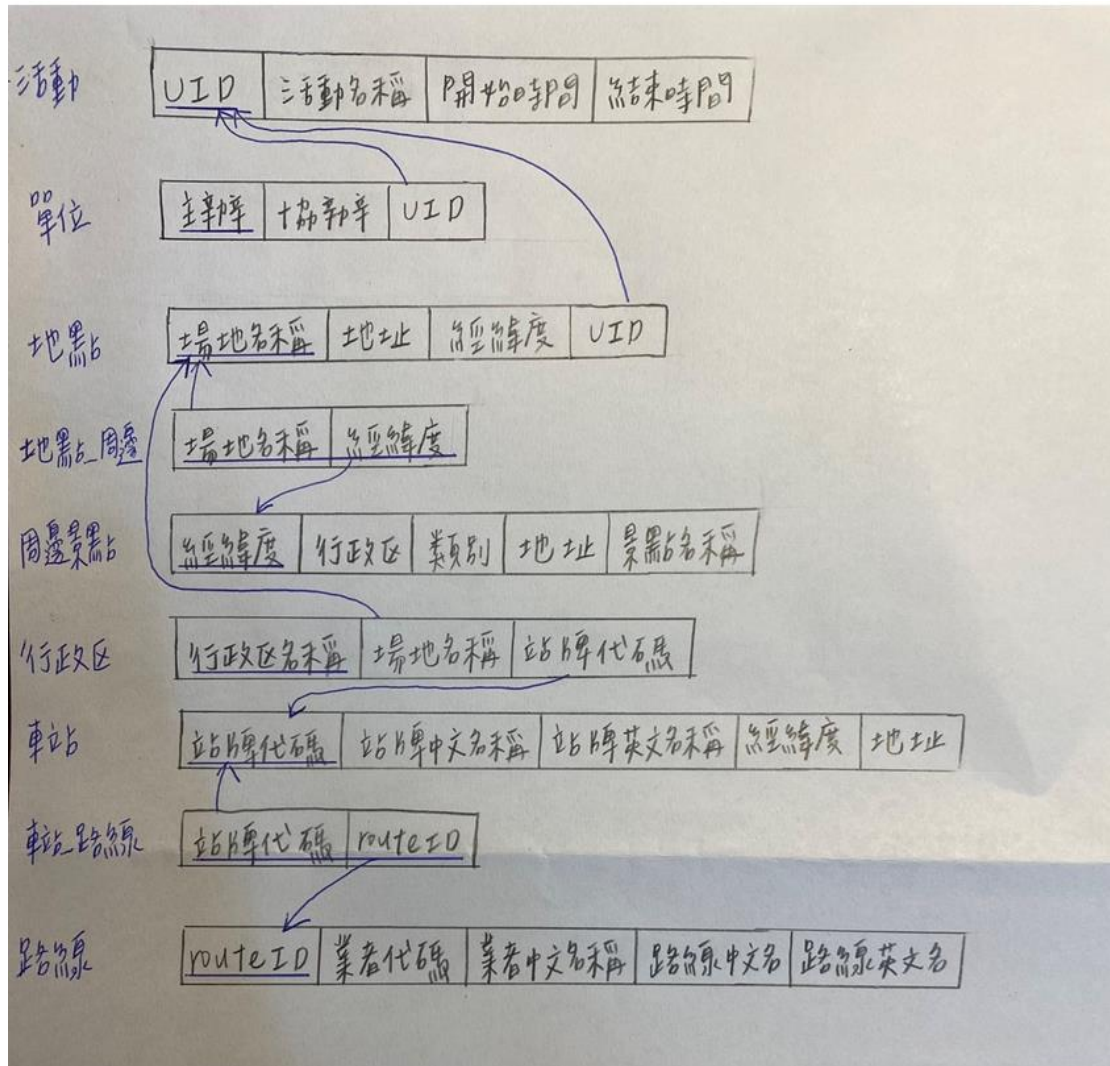 活動 UID 活動名稱 開始時間 結束時間
單位 主辦 協辦 UID
地點 場地名稱 地址 經緯度 UID
地點_周邊 場地名稱 經緯度
周邊景點 經緯度 行政区 類別 地址 景點名稱
行政区 行政区名稱 場地名稱 站牌代碼
車站 站牌代碼 站牌中文名稱 站牌英文名稱 經緯度 地址
車站_路線 站牌代碼 routeID
路線 routeID 業者代碼 業者中文名稱 路線中文名 路線英文名